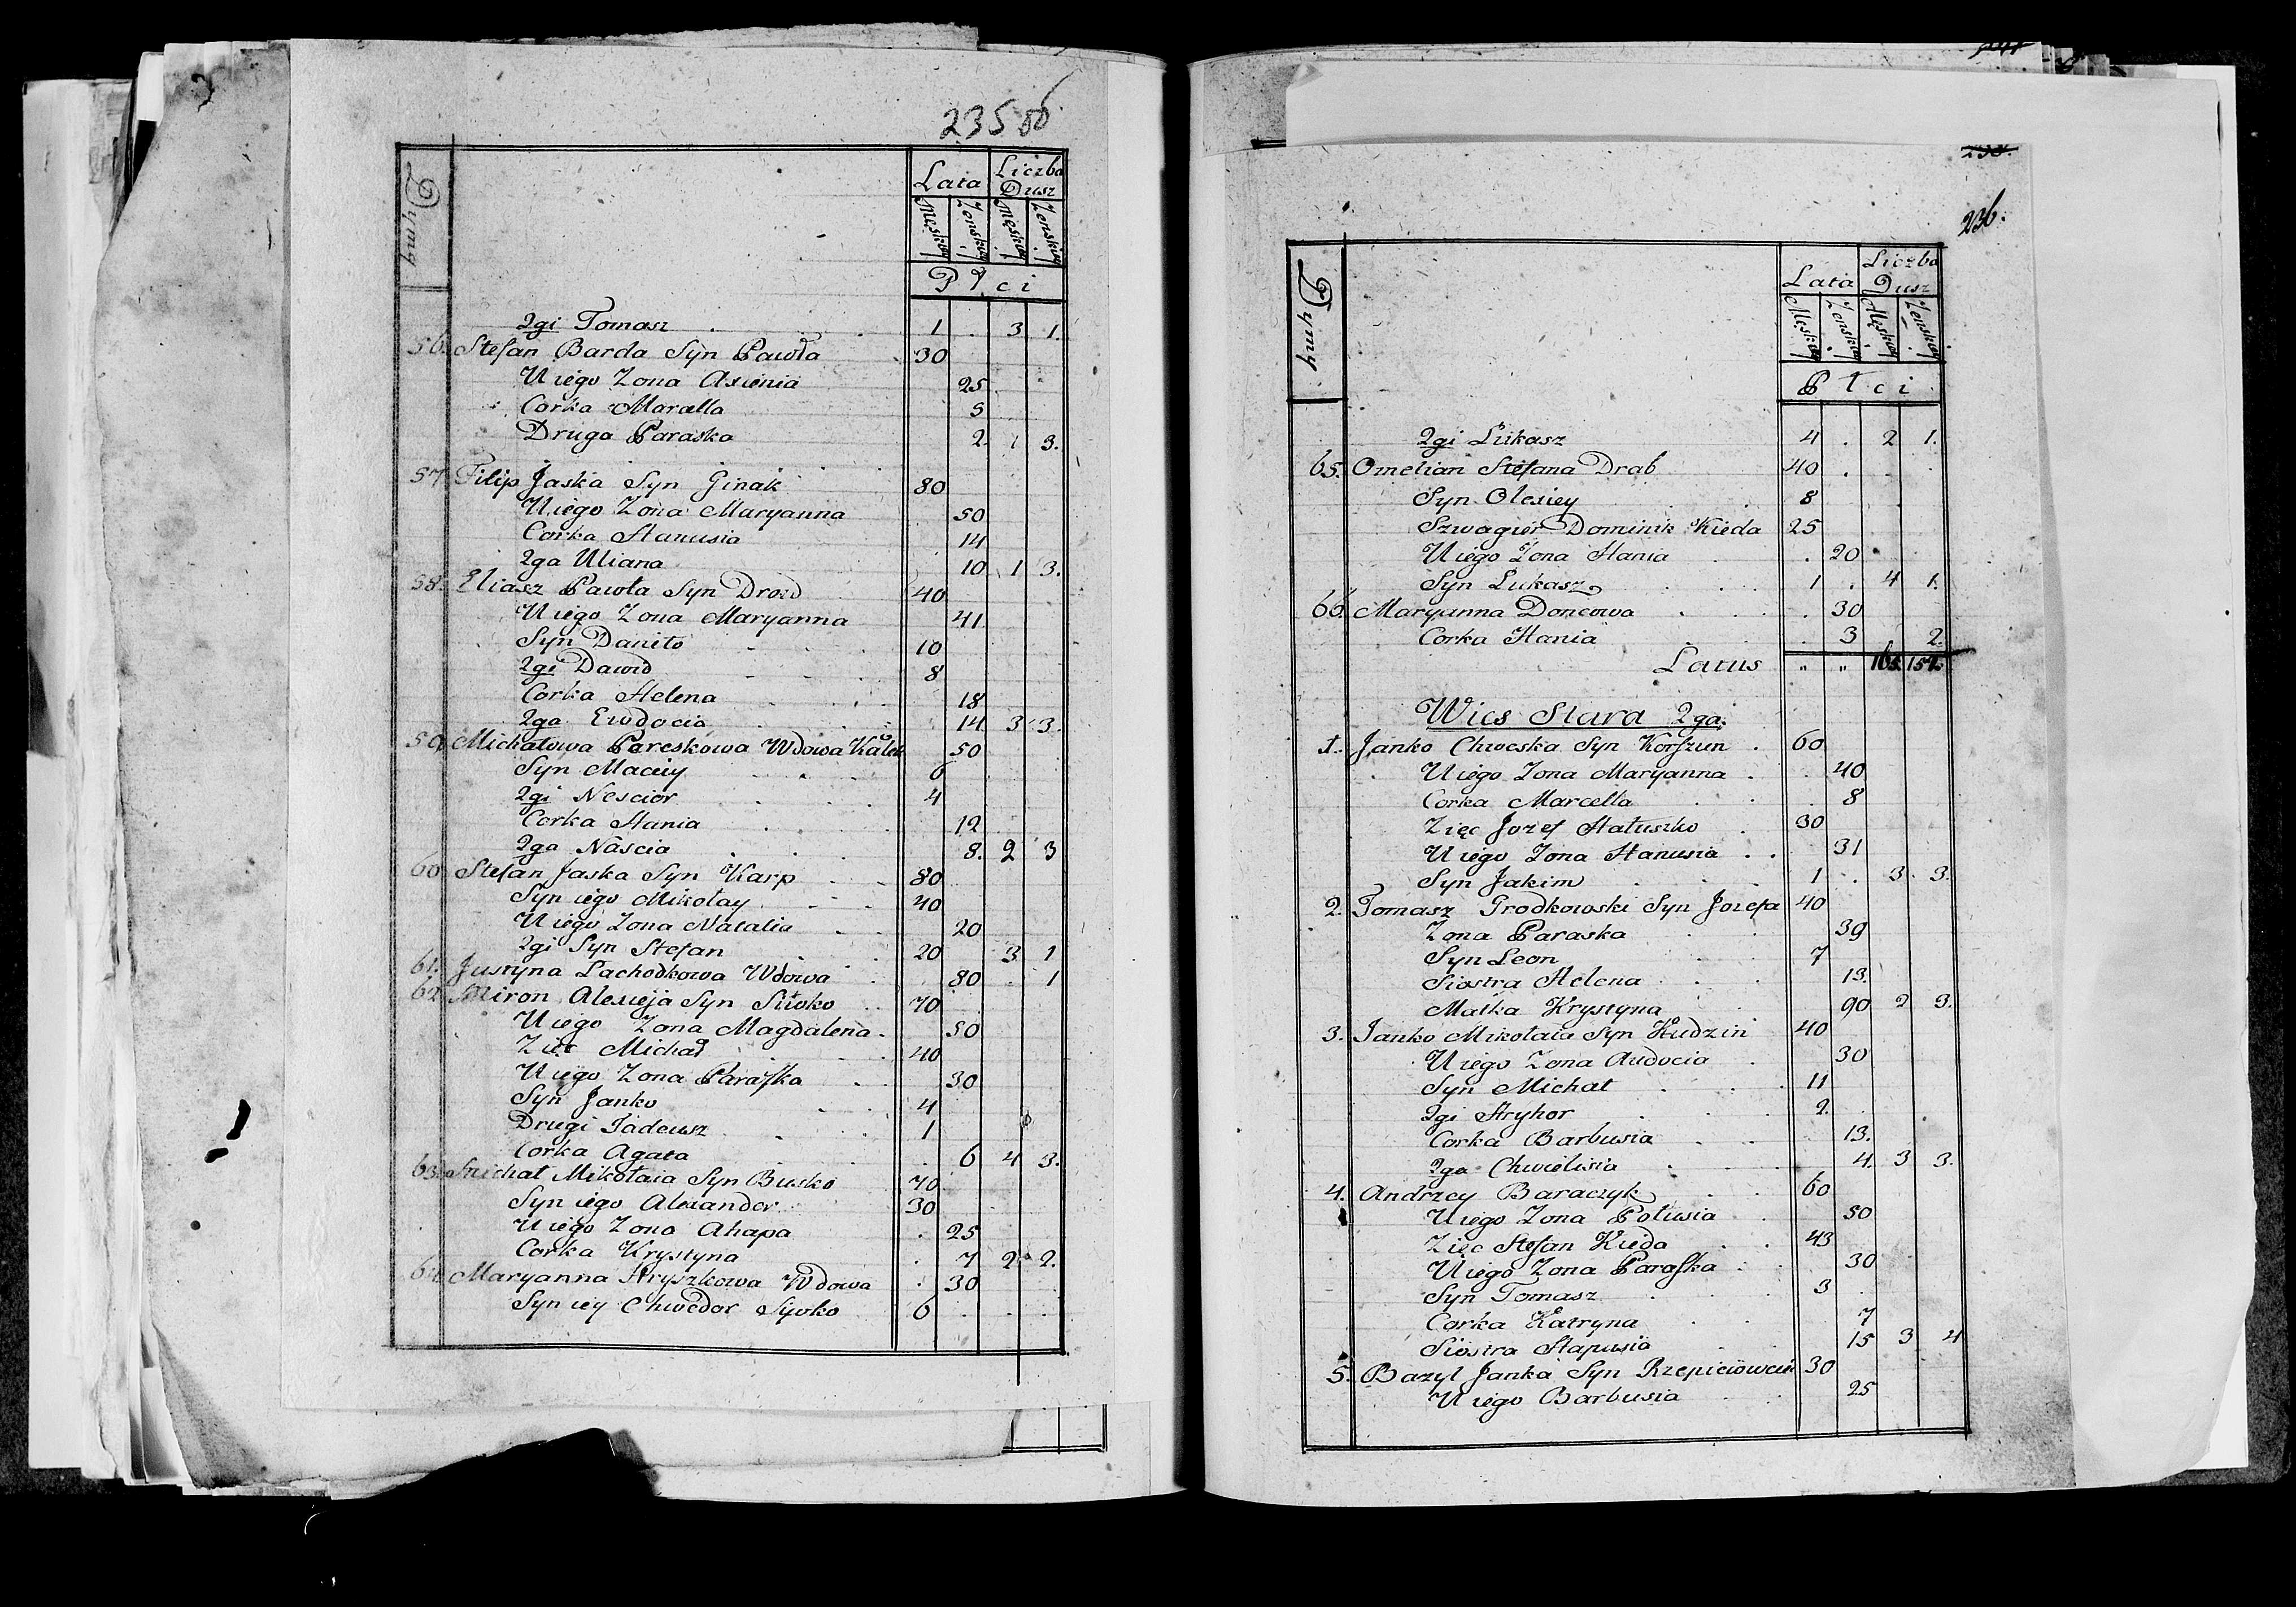 235 об
Dymy
Lata Liczba Dusz
Męskiey Żenskiey Męskiey Żenskiey
Płci
2gi Tomasz 1 . 3 1.
56. Stefan Barda Syn Pawła 30
U iego Zona Axienia 25
Corka Marcella 5
Druga Paraska 2. 1 3.
57 Filip Jaska Syn Ginak 80
U iego Zona Maryanna 50
Corka Hanusia 14
2ga Uliana 10 1 3.
58. Eliasz Pawła Syn Drozd 40
U iego Zona Maryanna 41
Syn Daniło 10
2gi Dawid 8
Corka Helena 18
2ga Ewdocia 14 3 3
59 Michałowa Pareskowa Wdowa 50
Syn Maciey 6
2gi Nescior 4
Corka Hania 12
2ga Nascia 8. 2 3
60 Stefan Jaska Syn Karp 80
Syn iego Mikołay 40
U iego Zona Natalia 20
2gi Syn Stefan 20 3 1
61. Justyna Lachodkowa Wdowa 80 1
62 Miron Alexieja Syn Siwko 70
U iego Zona Magdalena 50
Zięc Michał 40
U iego Zona Paraſka 30
Syn Janko 4
Drugi Tadeusz 1
Corka Agata 6 4 3.
63. Michał Mikołaia Syn Busko 70
Syn iego Alexander 30
U iego Zona Ahapa 25
Corka Krystyna 7 2 2.
64 Maryanna Hryszkowa Wdowa 30
Syn iey Chwedor Siwko 6
236.
Dymy
Lata Liczba Dusz
Męskiey Żenskiey Męskiey Żenskiey
Płci
2gi Łukasz 4 . 2 1.
65. Omelian Stefana Drab 40
Syn Olexiey 8
Szwagier Dominik Kieda 25
U iego Zona Hania 20
Syn Łukasz 1 . 4 1.
66. Maryanna Doncowa 30
Corka Hania 3 2.
Latus " " 165 157.
Wies Stara 2ga.
1. Janko Chweska Syn Korſzun 60
U iego Zona Maryanna 40
Corka Marcella 8
Zięc Jozef Hatuszko 30
U iego Zona Hanusia 31
Syn Jakim 1 . 3 3.
2. Tomasz Grodkowski Syn Jozefa 40
Zona Paraska 39
Syn Leon 7
Siostra Helena 13.
Matka Krystyna 90 2 3.
3. Janko Mikołaia Syn Hudzin 40
U iego Zona Audocia 30
Syn Michał 11
2gi Hryhor 2.
Corka Barbusia 13.
2ga Chwielisia 4. 3 3.
4. Andrzey Baraczyk 60
U iego Zona Połusia 50
Zięc Stefan Kieda 43
U iego Zona Paraſka 30
Syn Tomasz 3
Corka Katryna 7
Siostra Hapusia 15 3 4
5. Bazyl Janka Syn 30
U iego Barbusia 25